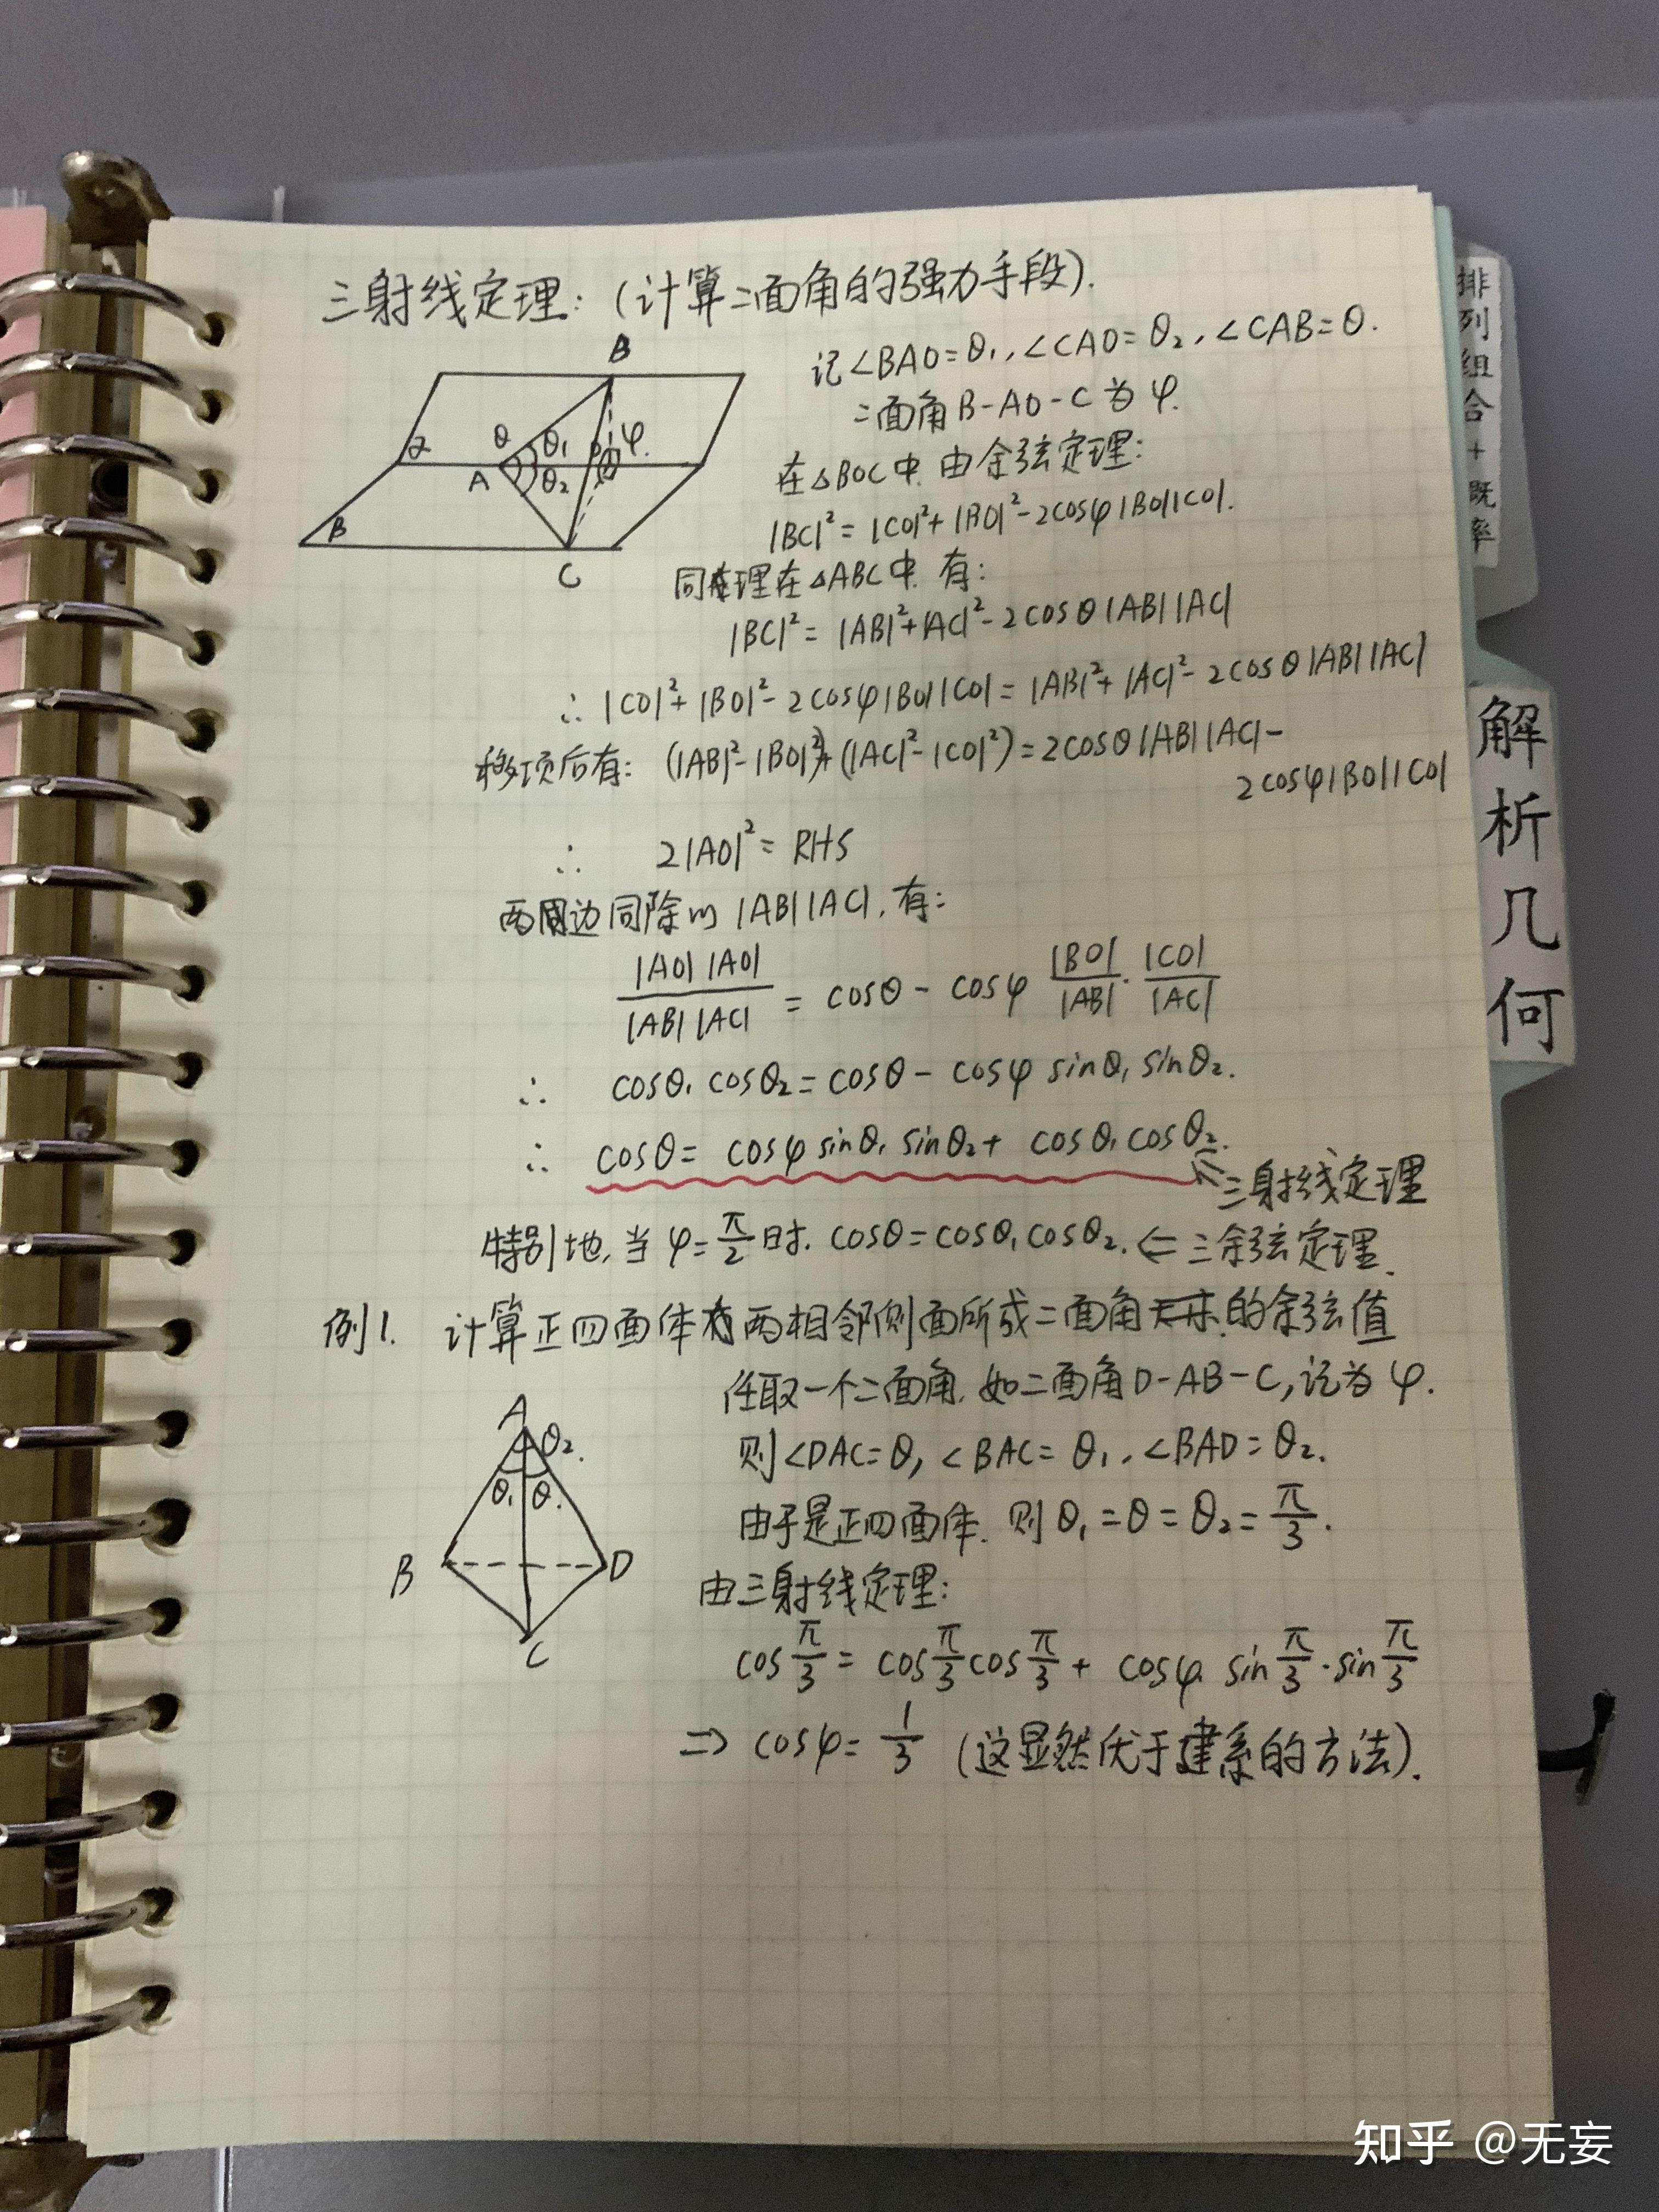 三射线定理：(计算二面角的强力手段).
记∠BAO=θ₁,∠CAO=θ₂,∠CAB=θ.
二面角B-AO-C为φ.
在△BOC中.由余弦定理：
|BC|²=|CO|²+|BO|²-2cosφ|BO||CO|.
B
α
θ
θ₁
φ
A
θ₂
O
β
C
同理在△ABC中.有：
|BC|²=|AB|²+|AC|²-2cosθ|AB||AC|
∴|CO|²+|BO|²-2cosφ|BO||CO|=|AB|²+|AC|²-2cosθ|AB||AC|
移项后有：(|AB|²-|BO|²)+(|AC|²-|CO|²)=2cosθ|AB||AC|-
2cosφ|BO||CO|
∴ 2|AO|²=RHS
两边同除以|AB||AC|.有：
|AO||AO|/|AB||AC| = cosθ-cosφ |BO|/|AB|·|CO|/|AC|
∴ cosθ₁cosθ₂=cosθ-cosφ sinθ₁sinθ₂.
∴ cosθ=cosφ sinθ₁ sinθ₂+cosθ₁cosθ₂.
⇐三射线定理
特别地,当φ=π/2时.cosθ=cosθ₁cosθ₂.⇐三余弦定理.
例1. 计算正四面体两相邻侧面所成二面角的余弦值
任取一个二面角.如二面角D-AB-C,记为φ.
则∠DAC=θ,∠BAC=θ₁,∠BAD=θ₂.
由于是正四面体.则θ₁=θ=θ₂=π/3.
A
θ₂.
θ₁
θ.
B
D
C
由三射线定理：
cosπ/3=cosπ/3cosπ/3+cosφ sinπ/3·sinπ/3
⇒cosφ=1/3 (这显然优于建系的方法).
排列组合+概率
解析几何
知乎 @无妄